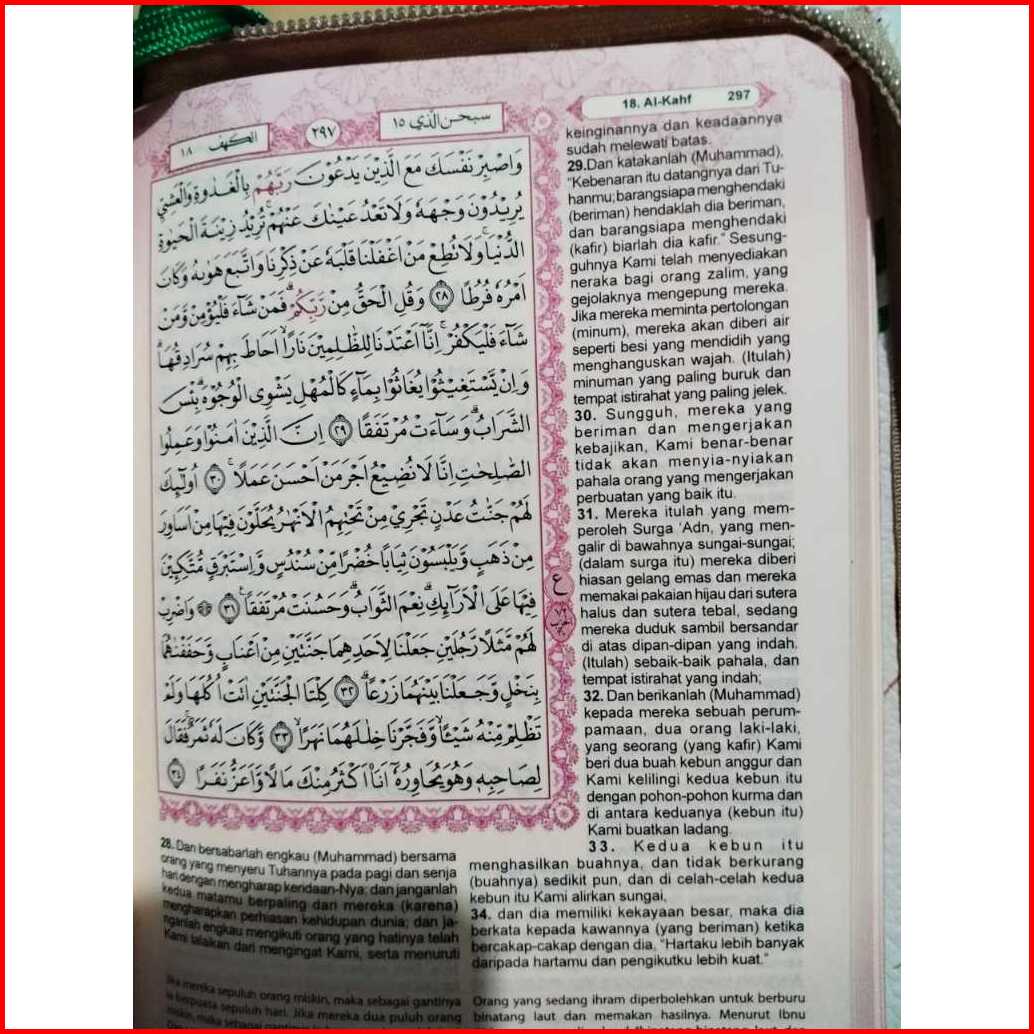 سبحن الذي ١٥
٢٩٧
الكهف ١٨
وَاصْبِرْ نَفْسَكَ مَعَ الَّذِيْنَ يَدْعُوْنَ رَبَّهُمْ بِالْغَدٰوةِ وَالْعَشِيِّ
يُرِيْدُوْنَ وَجْهَهٗ وَلَا تَعْدُ عَيْنٰكَ عَنْهُمْۚ تُرِيْدُ زِيْنَةَ الْحَيٰوةِ
الدُّنْيَاۚ وَلَا تُطِعْ مَنْ اَغْفَلْنَا قَلْبَهٗ عَنْ ذِكْرِنَا وَاتَّبَعَ هَوٰىهُ وَكَانَ
اَمْرُهٗ فُرُطًا ۝٢٨ وَقُلِ الْحَقُّ مِنْ رَّبِّكُمْۗ فَمَنْ شَاۤءَ فَلْيُؤْمِنْ وَّمَنْ
شَاۤءَ فَلْيَكْفُرْۚ اِنَّآ اَعْتَدْنَا لِلظّٰلِمِيْنَ نَارًاۙ اَحَاطَ بِهِمْ سُرَادِقُهَاۗ
وَاِنْ يَّسْتَغِيْثُوْا يُغَاثُوْا بِمَاۤءٍ كَالْمُهْلِ يَشْوِى الْوُجُوْهَۗ بِئْسَ
الشَّرَابُۗ وَسَاۤءَتْ مُرْتَفَقًا ۝٢٩ اِنَّ الَّذِيْنَ اٰمَنُوْا وَعَمِلُوا
الصّٰلِحٰتِ اِنَّا لَا نُضِيْعُ اَجْرَ مَنْ اَحْسَنَ عَمَلًاۚ ۝٣٠ اُولٰۤىِٕكَ
لَهُمْ جَنّٰتُ عَدْنٍ تَجْرِيْ مِنْ تَحْتِهِمُ الْاَنْهٰرُ يُحَلَّوْنَ فِيْهَا مِنْ اَسَاوِرَ
مِنْ ذَهَبٍ وَّيَلْبَسُوْنَ ثِيَابًا خُضْرًا مِّنْ سُنْدُسٍ وَّاِسْتَبْرَقٍ مُّتَّكِـِٕيْنَ
فِيْهَا عَلَى الْاَرَاۤىِٕكِۗ نِعْمَ الثَّوَابُۗ وَحَسُنَتْ مُرْتَفَقًا ۝٣١ ۞ وَاضْرِبْ
لَهُمْ مَّثَلًا رَّجُلَيْنِ جَعَلْنَا لِاَحَدِهِمَا جَنَّتَيْنِ مِنْ اَعْنَابٍ وَّحَفَفْنٰهُمَا
بِنَخْلٍ وَّجَعَلْنَا بَيْنَهُمَا زَرْعًاۗ ۝٣٢ كِلْتَا الْجَنَّتَيْنِ اٰتَتْ اُكُلَهَا وَلَمْ
تَظْلِمْ مِّنْهُ شَيْـًٔاۙ وَّفَجَّرْنَا خِلٰلَهُمَا نَهَرًاۙ ۝٣٣ وَّكَانَ لَهٗ ثَمَرٌۚ فَقَالَ
لِصَاحِبِهٖ وَهُوَ يُحَاوِرُهٗٓ اَنَا۠ اَكْثَرُ مِنْكَ مَالًا وَّاَعَزُّ نَفَرًا ۝٣٤
ع
28. Dan bersabarlah engkau (Muhammad) bersama
orang yang menyeru Tuhannya pada pagi dan senja
hari dengan mengharap keridaan-Nya; dan janganlah
kedua matamu berpaling dari mereka (karena)
mengharapkan perhiasan kehidupan dunia; dan ja-
nganlah engkau mengikuti orang yang hatinya telah
Kami lalaikan dari mengingat Kami, serta menuruti
18. Al-Kahf 297
keinginannya dan keadaannya
sudah melewati batas.
29.Dan katakanlah (Muhammad),
"Kebenaran itu datangnya dari Tu-
hanmu; barangsiapa menghendaki
(beriman) hendaklah dia beriman,
dan barangsiapa menghendaki
(kafir) biarlah dia kafir." Sesung-
guhnya Kami telah menyediakan
neraka bagi orang zalim, yang
gejolaknya mengepung mereka.
Jika mereka meminta pertolongan
(minum), mereka akan diberi air
seperti besi yang mendidih yang
menghanguskan wajah. (Itulah)
minuman yang paling buruk dan
tempat istirahat yang paling jelek.
30. Sungguh, mereka yang
beriman dan mengerjakan
kebajikan, Kami benar-benar
tidak akan menyia-nyiakan
pahala orang yang mengerjakan
perbuatan yang baik itu.
31. Mereka itulah yang mem-
peroleh Surga 'Adn, yang men-
galir di bawahnya sungai-sungai;
(dalam surga itu) mereka diberi
hiasan gelang emas dan mereka
memakai pakaian hijau dari sutera
halus dan sutera tebal, sedang
mereka duduk sambil bersandar
di atas dipan-dipan yang indah.
(Itulah) sebaik-baik pahala, dan
tempat istirahat yang indah;
32. Dan berikanlah (Muhammad)
kepada mereka sebuah perum-
pamaan, dua orang laki-laki,
yang seorang (yang kafir) Kami
beri dua buah kebun anggur dan
Kami kelilingi kedua kebun itu
dengan pohon-pohon kurma dan
di antara keduanya (kebun itu)
Kami buatkan ladang.
33. Kedua kebun itu
menghasilkan buahnya, dan tidak berkurang
(buahnya) sedikit pun, dan di celah-celah kedua
kebun itu Kami alirkan sungai,
34. dan dia memiliki kekayaan besar, maka dia
berkata kepada kawannya (yang beriman) ketika
bercakap-cakap dengan dia, "Hartaku lebih banyak
daripada hartamu dan pengikutku lebih kuat."
Jika mereka sepuluh orang miskin, maka sebagai gantinya
ia berpuasa sepuluh hari. Jika mereka dua puluh orang
miskin, maka sebagai
Orang yang sedang ihram diperbolehkan untuk berburu
binatang laut dan memakan hasilnya. Menurut Ibnu